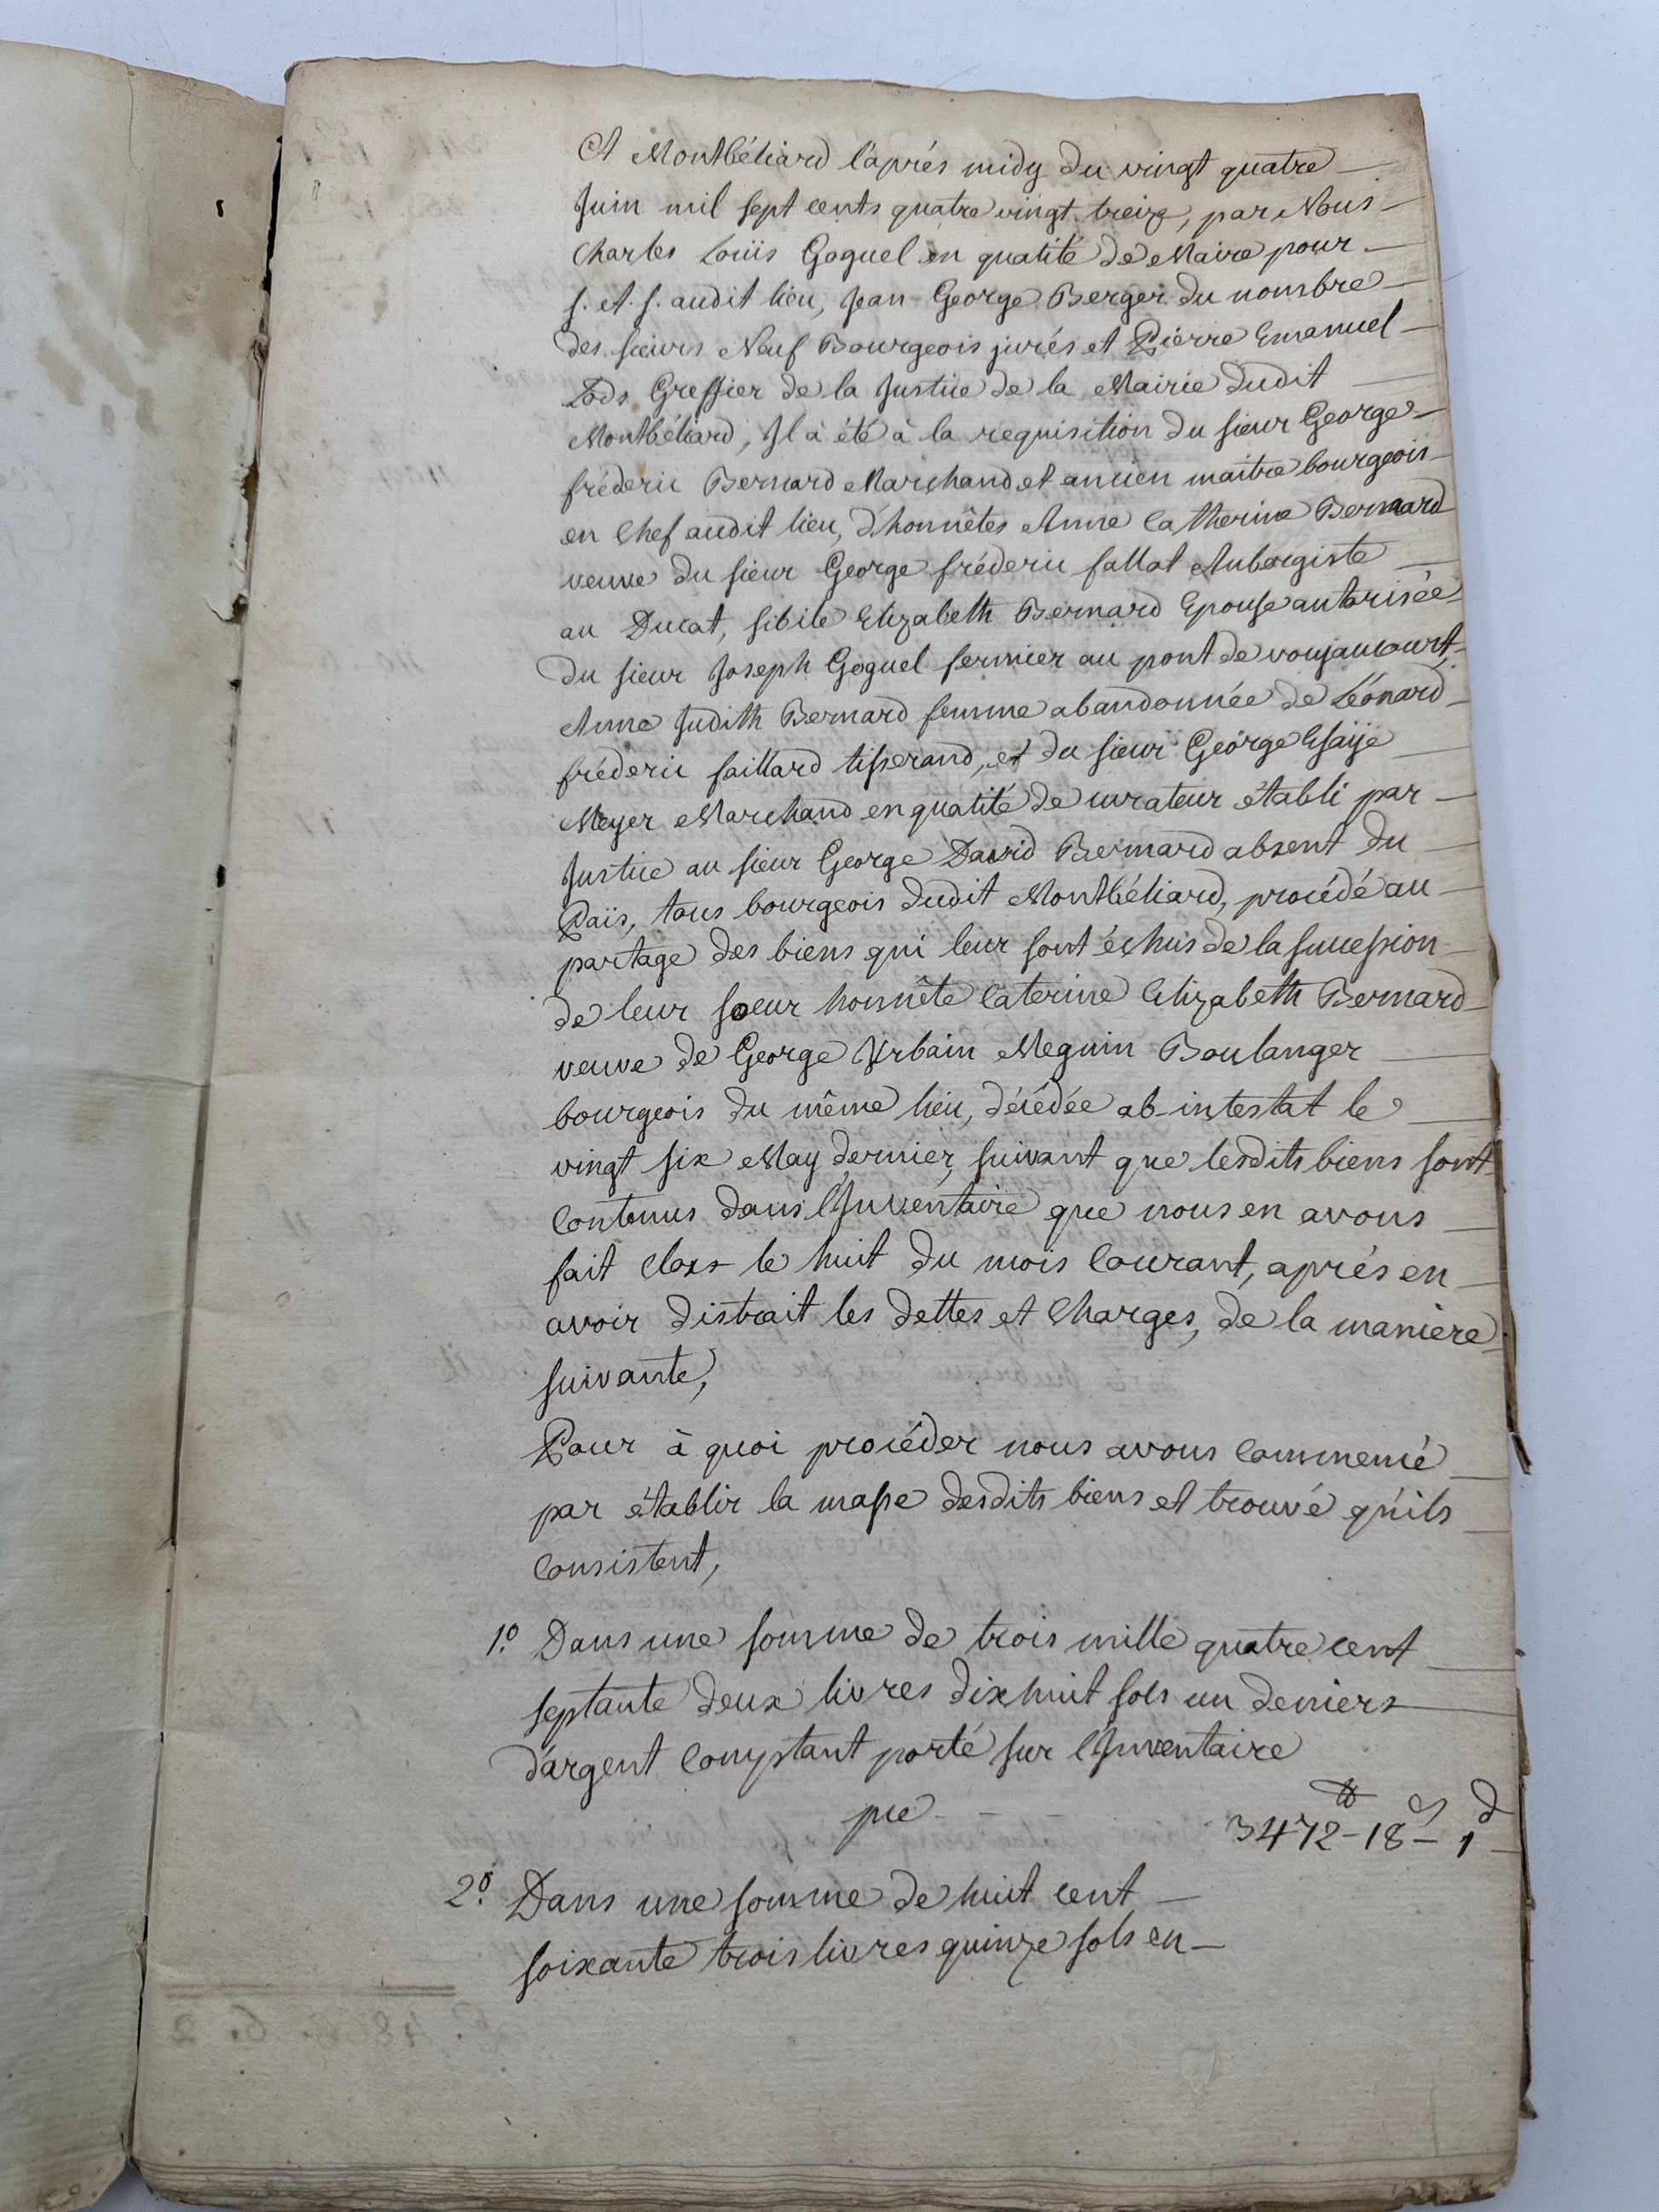 A Montbéliard l'aprés midy du vingt quatre
Juin mil sept cents quatre vingt treize, par Nous
Charles Loüis Goguel en qualité de Maire pour
S. A. S. audit lieu, Jean George Berger du nombre
des sieurs Neuf Bourgeois jurés et Pierre Emanuel
Lods Greffier de la Justice de la Mairie dudit
Montbéliard, Il à été à la requisition du sieur George
fréderic Bernard Marchand et ancien maitre bourgeois
en Chef audit lieu, d'honnêtes Anne Catherine Bernard
veuve du sieur George fréderic fallot Aubergiste
au Ducat, Sibile Elizabeth Bernard Epouse autorisée
du sieur Joseph Goguel fermier au pont de voujaucourt,
Anne Judith Bernard femme abandonnée de Léonard
fréderic faillard tisserand, et du sieur George Esaïe
Meyer Marchand en qualité de curateur établi par
Justice au sieur George David Bernard absent du
Païs, tous bourgeois dudit Montbéliard, procédé au
partage des biens qui leur sont échus de la succession
de leur soeur honnête Caterine Elizabeth Bernard
veuve de George Urbain Meguin Boulanger
bourgeois du même lieu, décédée ab-intestat le
vingt six May dernier, suivant que lesdits biens sont
Contenus dans l'Inventaire que nous en avons
fait clors le huit du mois Courant, aprés en
avoir distrait les dettes et Charges, de la maniere
suivante,
Pour à quoi procéder nous avons Commencé
par établir la masse desdits biens et trouvé qu'ils
Consistent,
1.º Dans une somme de trois mille quatre cent
septante deux livres dixhuit sols un deniers
d'argent Comptant porté sur l'Inventaire
pce - - - 3472 - 18 - 1
2.º Dans une somme de huit cent
soixante trois livres quinze sols en